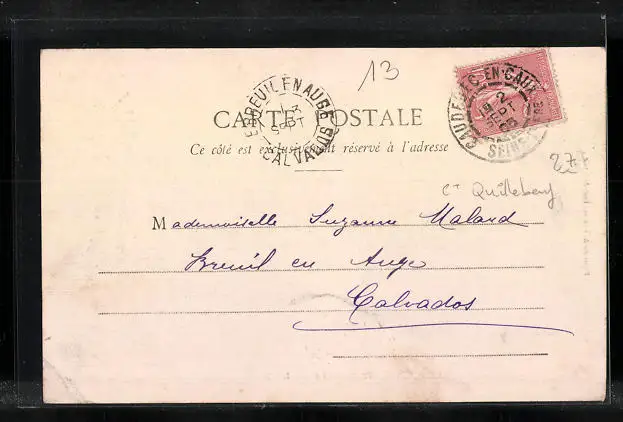 13
CARTE POSTALE
Ce côté est exclusivement réservé à l'adresse
BREUIL EN AUGE
SEPT
CALVADOS
CAUDEBEC-EN-CAUX
SEPT
SEINE-INFRE
277
Ct Quillebeuf
Mademoiselle Suzanne Malard
Breuil en Auge
Calvados